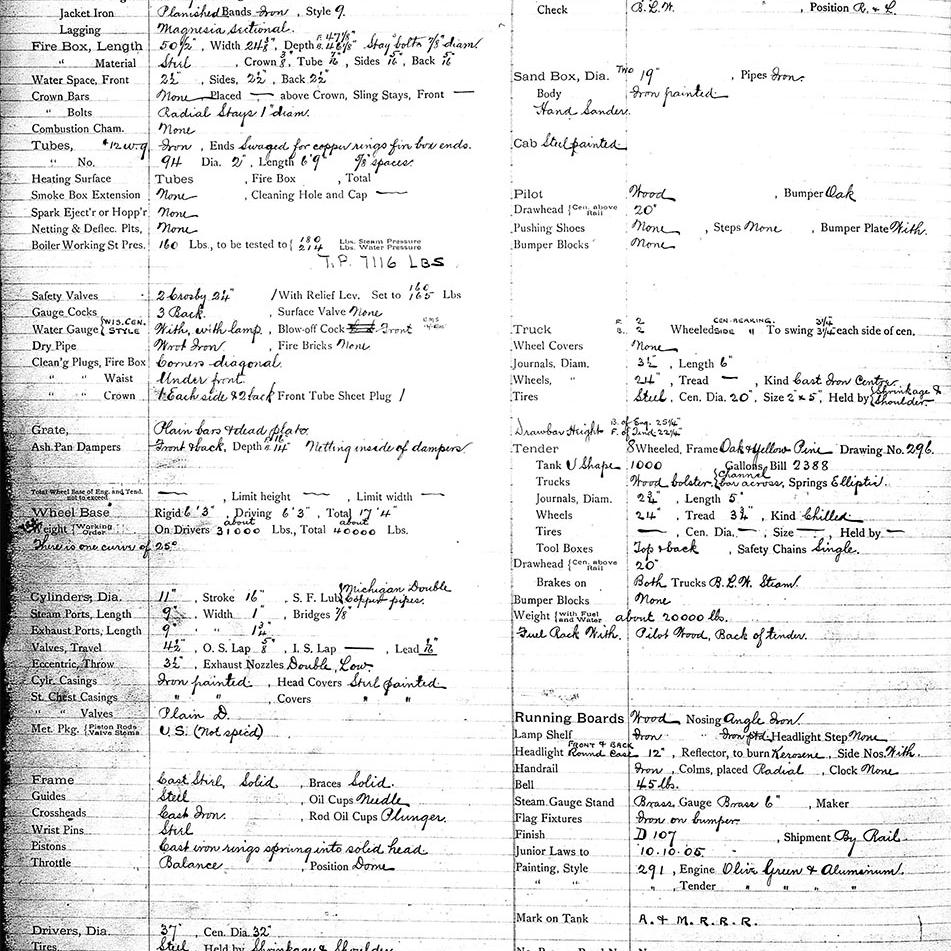 Jacket Iron Planished Bands Iron, Style 9.
Lagging Magnesia Sectional.
Fire Box, Length 50½", Width 24⅜", Depth F. 47⅛" B. 46⅛" Stay bolts ⅞" diam
" Material Steel, Crown ⅜, Tube 7/16", Sides 5/16", Back 5/16
Water Space, Front 2½", Sides, 2½, Back 2½
Crown Bars None Placed — above Crown, Sling Stays, Front —
" Bolts Radial Stays 1" diam.
Combustion Cham. None
Tubes, #12 W.G. Iron, Ends Swaged for copper rings fire box ends.
" No. 94 Dia. 2", Length 6' 9" ⅝" spaces.
Heating Surface Tubes , Fire Box , Total
Smoke Box Extension None , Cleaning Hole and Cap —
Spark Eject'r or Hopp'r None
Netting & Deflec. Plts, None
Boiler Working St Pres. 160 Lbs., to be tested to { 180 Lbs. Steam Pressure
214 Lbs. Water Pressure
T.P. 7116 LBS
Safety Valves 2 Crosby 2¼" / With Relief Lev. Set to 160 165 Lbs
Gauge Cocks 3 Back. , Surface Valve None
Water Gauge {WIS. CEN. STYLE With, with lamp, Blow-off Cock Front
Dry Pipe Wrot Iron , Fire Bricks None
Clean'g Plugs, Fire Box Corners diagonal.
" " Waist Under front
" " Crown 1 Each side & 2 back Front Tube Sheet Plug 1
Grate, Plain bars & dead plate.
Ash Pan Dampers Front & back, Depth F. 16 B. 14" Netting inside of dampers.
Total Wheel Base of Eng. and Tend. not to exceed —, Limit height —, Limit width —
Wheel Base Rigid 6' 3", Driving 6' 3", Total 17' 4"
Weight {Working Order On Drivers about 31000 Lbs., Total about 40000 Lbs.
There is one curve of 25°
Cylinders, Dia. 11", Stroke 16", S. F. Lub. {Michigan Double
Copper pipes.
Steam Ports, Length 9", Width 1" Bridges ⅞"
Exhaust Ports, Length 9" " " 1¾"
Valves, Travel 4½, O. S. Lap ⅝", I. S. Lap —, Lead 1/16"
Eccentric, Throw 3½", Exhaust Nozzles Double, Low.
Cylr. Casings Iron painted , Head Covers Steel painted
St. Chest Casings " " , Covers " "
" " Valves Plain D.
Met. Pkg. {Piston Rods Valve Stems U.S. (Not specd)
Frame Cast Steel, Solid , Braces Solid.
Guides Steel , Oil Cups Needle
Crossheads Cast Iron. , Rod Oil Cups Plunger.
Wrist Pins Steel
Pistons Cast iron rings sprung into solid head.
Throttle Balance , Position Dome
Drivers, Dia. 37", Cen. Dia. 32"
Tires. Steel, Held by Shrinkage & Shoulder
Check B.L.W. , Position R. & L.
Sand Box, Dia. TWO 19" , Pipes Iron.
Body Iron painted
Hand Sander.
Cab Steel painted
Pilot Wood , Bumper Oak
Drawhead {Cen. above Rail 20"
Pushing Shoes None , Steps None , Bumper Plate With.
Bumper Blocks None
Truck F. 2 B. 2 Wheeled CEN. BEARING. SIDE " To swing 3¼ 3¼ each side of cen.
Wheel Covers None
Journals, Diam. 3½, Length 6"
Wheels, " 24", Tread — , Kind Cast Iron Centre.
Tires Steel, Cen. Dia. 20", Size 2"x5", Held by {Shrinkage & Shoulder.
Drawbar Height B. of Eng. 25¼"
F. of Tend. 22¼"
Tender 8 Wheeled, Frame Oak & Yellow Pine Drawing No. 296.
Tank U Shape 1000 Gallons, Bill 2388
Trucks Wood bolster {Channel bar across, Springs Elliptic.
Journals, Diam. 2¾", Length 5"
Wheels 24", Tread 3¾", Kind Chilled
Tires —, Cen. Dia. —, Size —, Held by —
Tool Boxes Top & back , Safety Chains Single.
Drawhead {Cen. above Rail 20"
Brakes on Both Trucks B.L.W. Steam.
Bumper Blocks None
Weight {with Fuel and Water about 20000 lbs.
Fuel Rack With. Pilot Wood, Back of tender.
Running Boards Wood Nosing Angle Iron.
Lamp Shelf Iron Iron ptd. Headlight Step None
Headlight FRONT & BACK Round Case 12", Reflector, to burn Kerosene, Side Nos. With.
Handrail Iron, Colms, placed Radial , Clock None
Bell 45 lbs.
Steam Gauge Stand Brass, Gauge Brass 6" , Maker
Flag Fixtures Iron on bumper.
Finish D 107 , Shipment By Rail
Junior Laws to 10.10.05
Painting, Style 291, Engine Olive Green & Aluminum.
" " " , Tender " " " "
Mark on Tank A. & M. R. R. R.